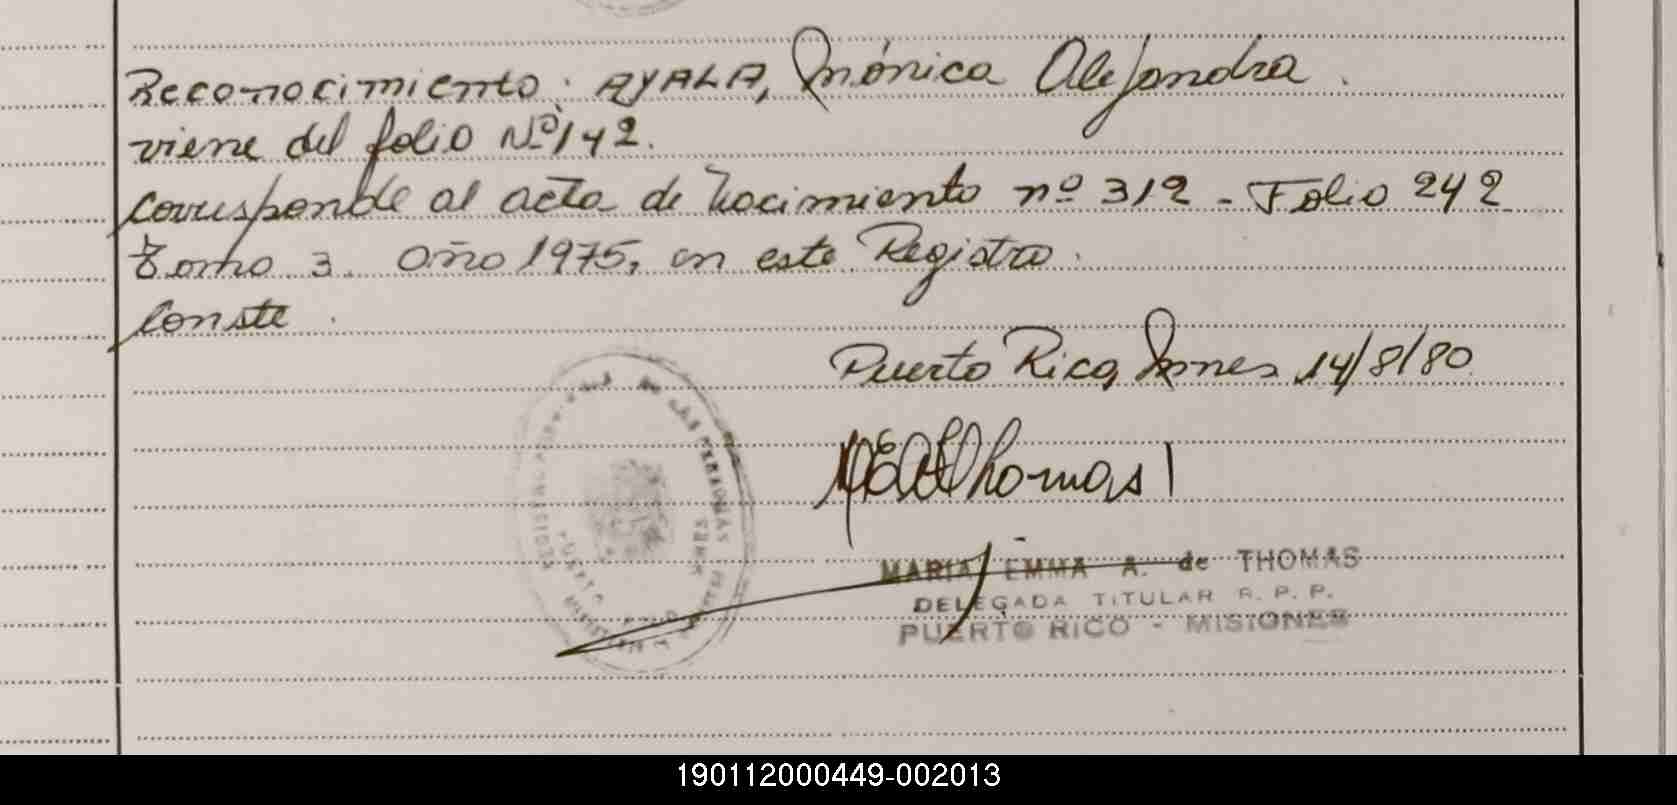 Reconocimiento: AYALA, Mónica Alejandra.
viene del folio Nº 142.
corresponde al acta de nacimiento nº 312 - Folio 242
Tomo 3. Año 1975, en este Registro.
Conste.
Puerto Rico, Mnes 14/8/80
MEAdeThomas
MARIA EMMA A. de THOMAS
DELEGADA TITULAR R. P. P.
PUERTO RICO - MISIONES
DE LAS PERSONAS
PUERTO RICO
MISIONES
190112000449-002013